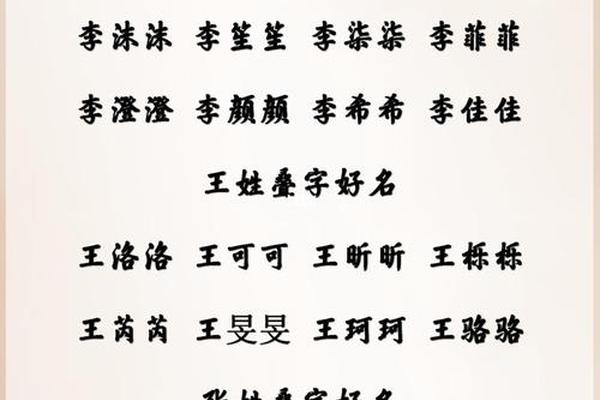 李沫沫 李笙笙 李柒柒 李菲菲
李澄澄 李颜颜 李希希 李佳佳
王姓叠字好名
王洛洛 王可可 王昕昕 王栎栎
王芮芮 王旻旻 王珂珂 王骆骆
张姓叠字好名